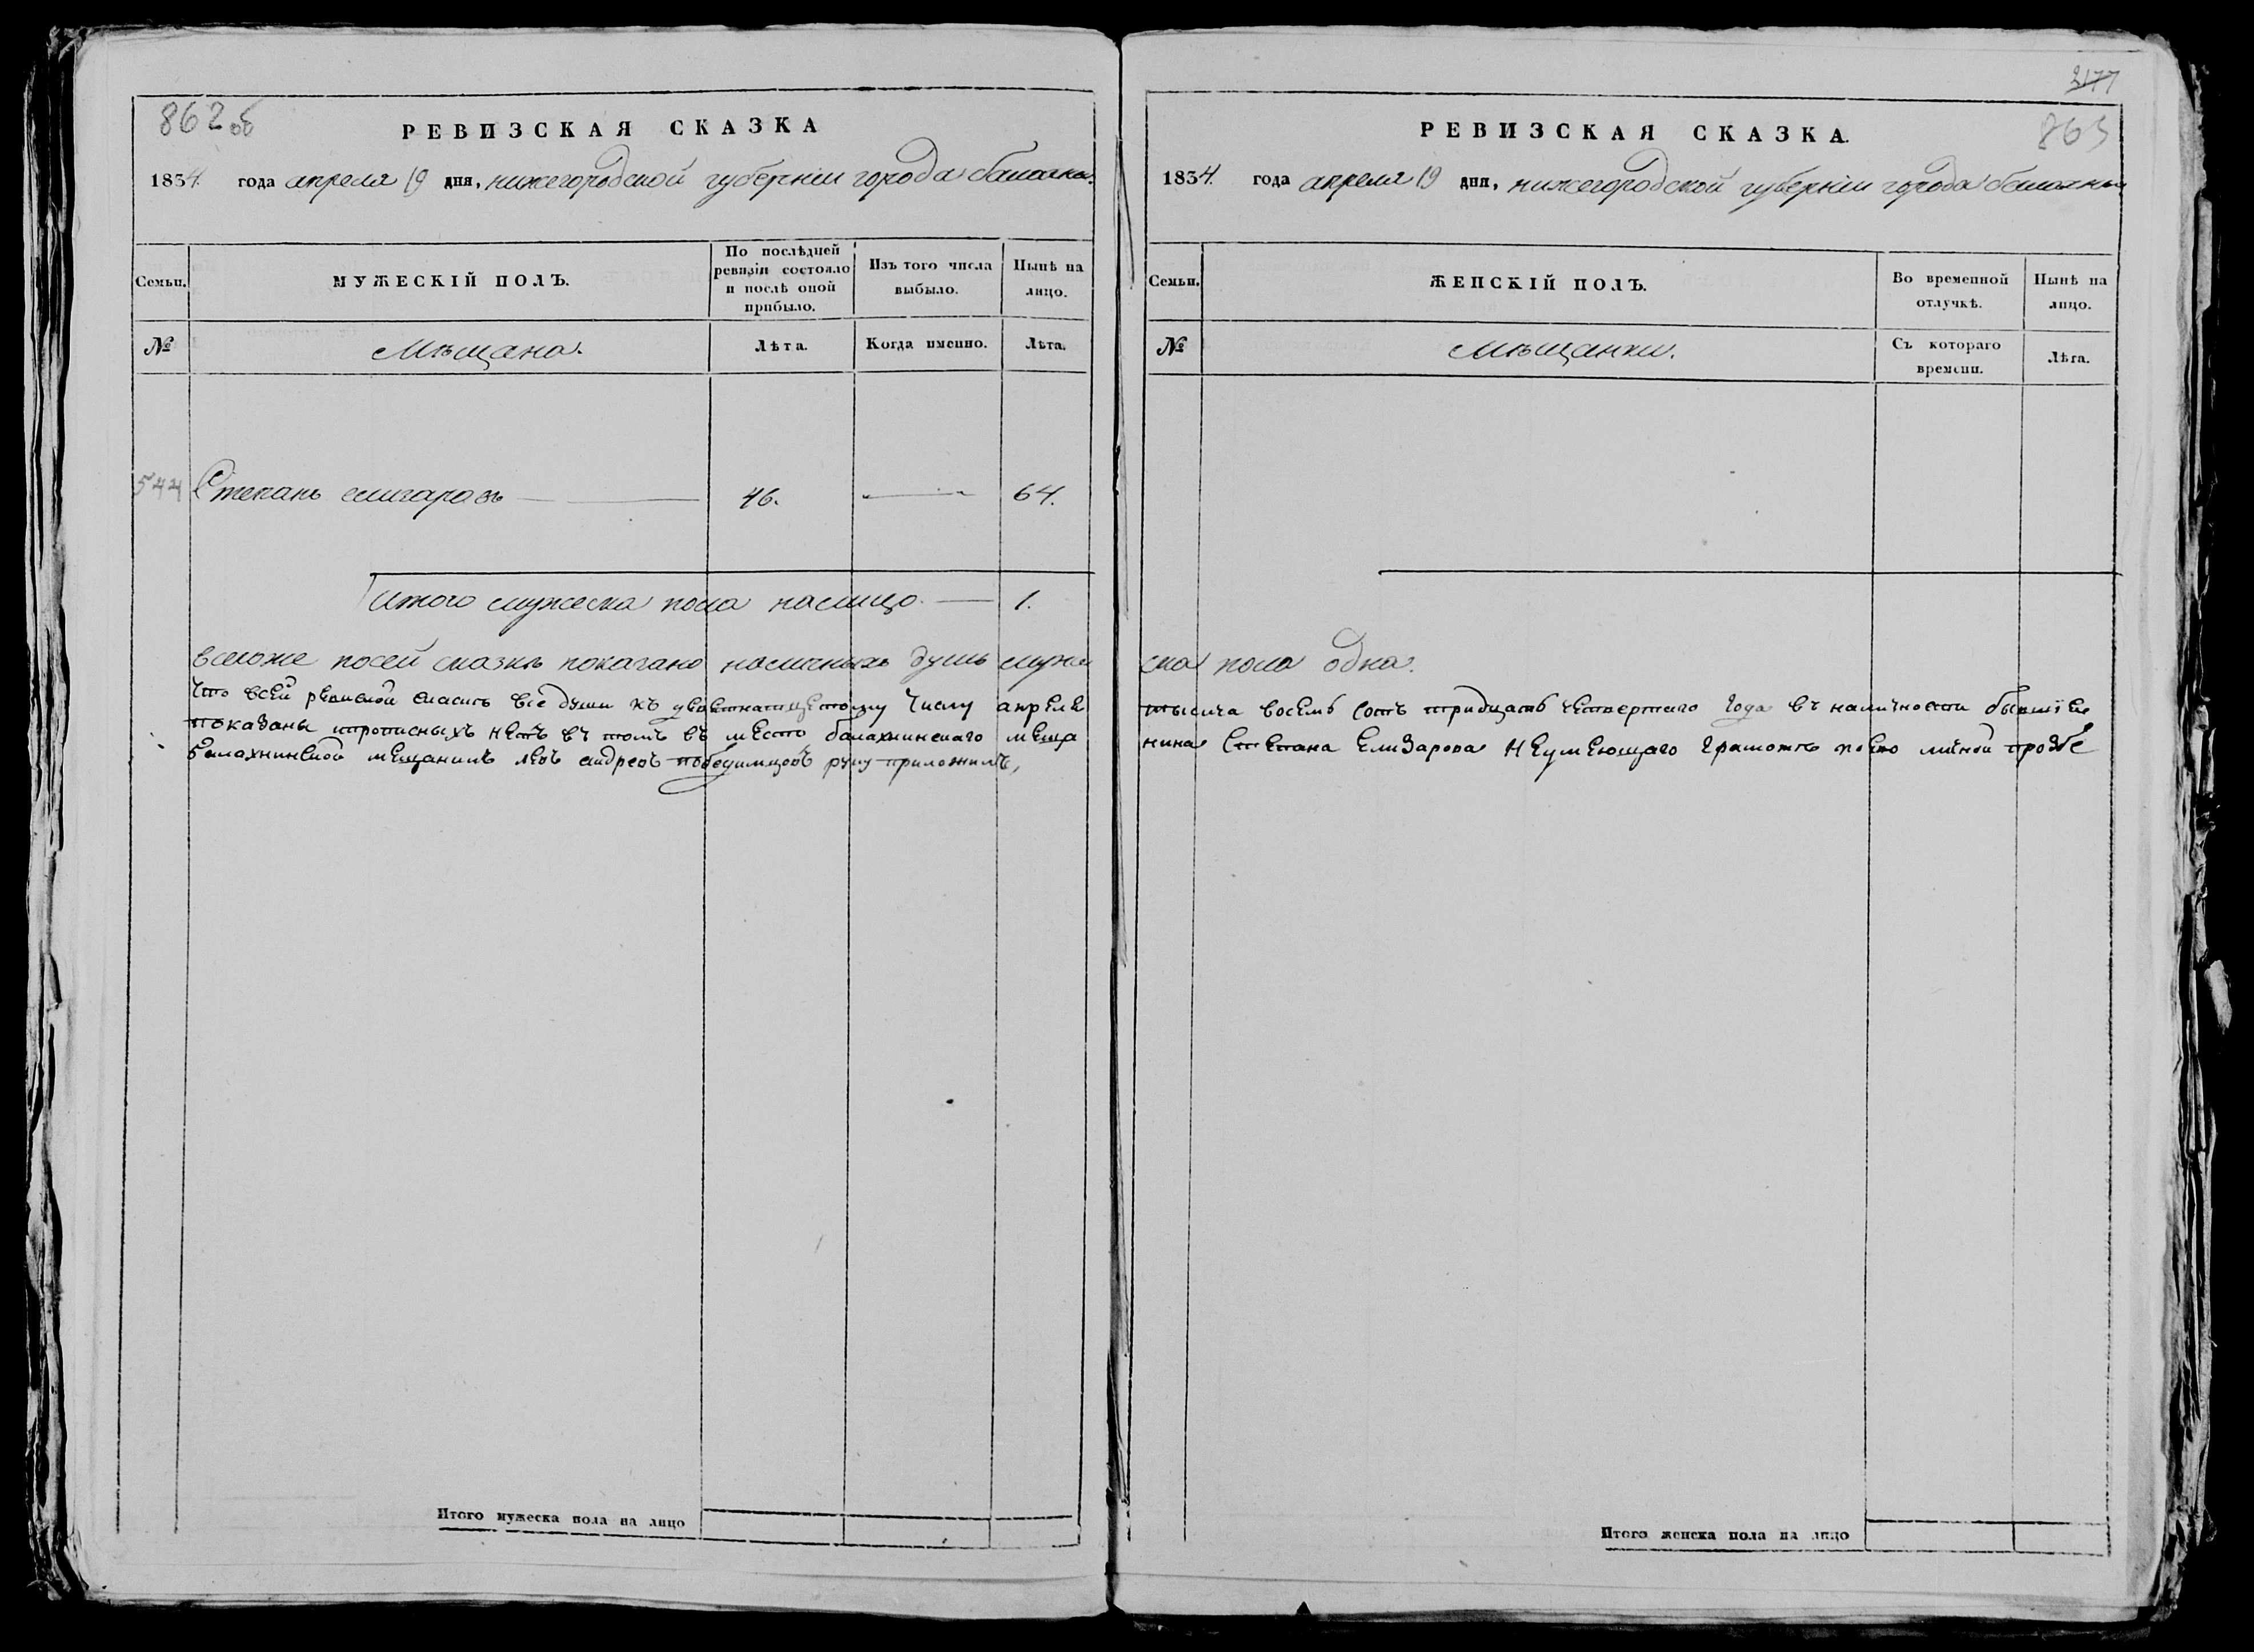 862 об
РЕВИЗСКАЯ СКАЗКА
1834. года апреля 19 дня, нижегородской губерніи города балахны.
Семьи.
МУЖЕСКІЙ ПОЛЪ.
По послѣдней ревизіи состояло и послѣ оной прибыло.
Изъ того числа выбыло.
Нынѣ на лицо.
№
Мѣщана.
Лѣта.
Когда именно.
Лѣта.
544 Степанъ елизаровъ 46. 64.
итого мужеска пола налицо 1.
всегоже посей сказкѣ показано наличныхъ душъ муже
что всей ревиской скаске все души къ деветнатцетому числу апреля
показаны прописныхъ нетъ въ томъ въ место балахнинскаго меща
балахнинской мещанинъ левъ андреевъ руку приложилъ,
Итого мужеска пола на лицо
2177
863
РЕВИЗСКАЯ СКАЗКА.
1834. года апреля 19 дня, нижегородской губерніи города балахны
Семьи.
ЖЕНСКІЙ ПОЛЪ.
Во временной отлучкѣ.
Нынѣ на лицо.
№
Мѣщанки.
Съ котораго времени.
Лѣта.
ска пола одна.
тысеча восемь сотъ тридцать четвертаго года въ наличности бывшіе
нина Степана Елизарова неумеющаго грамотѣ поево личной прозбе
Итого женска пола на лицо